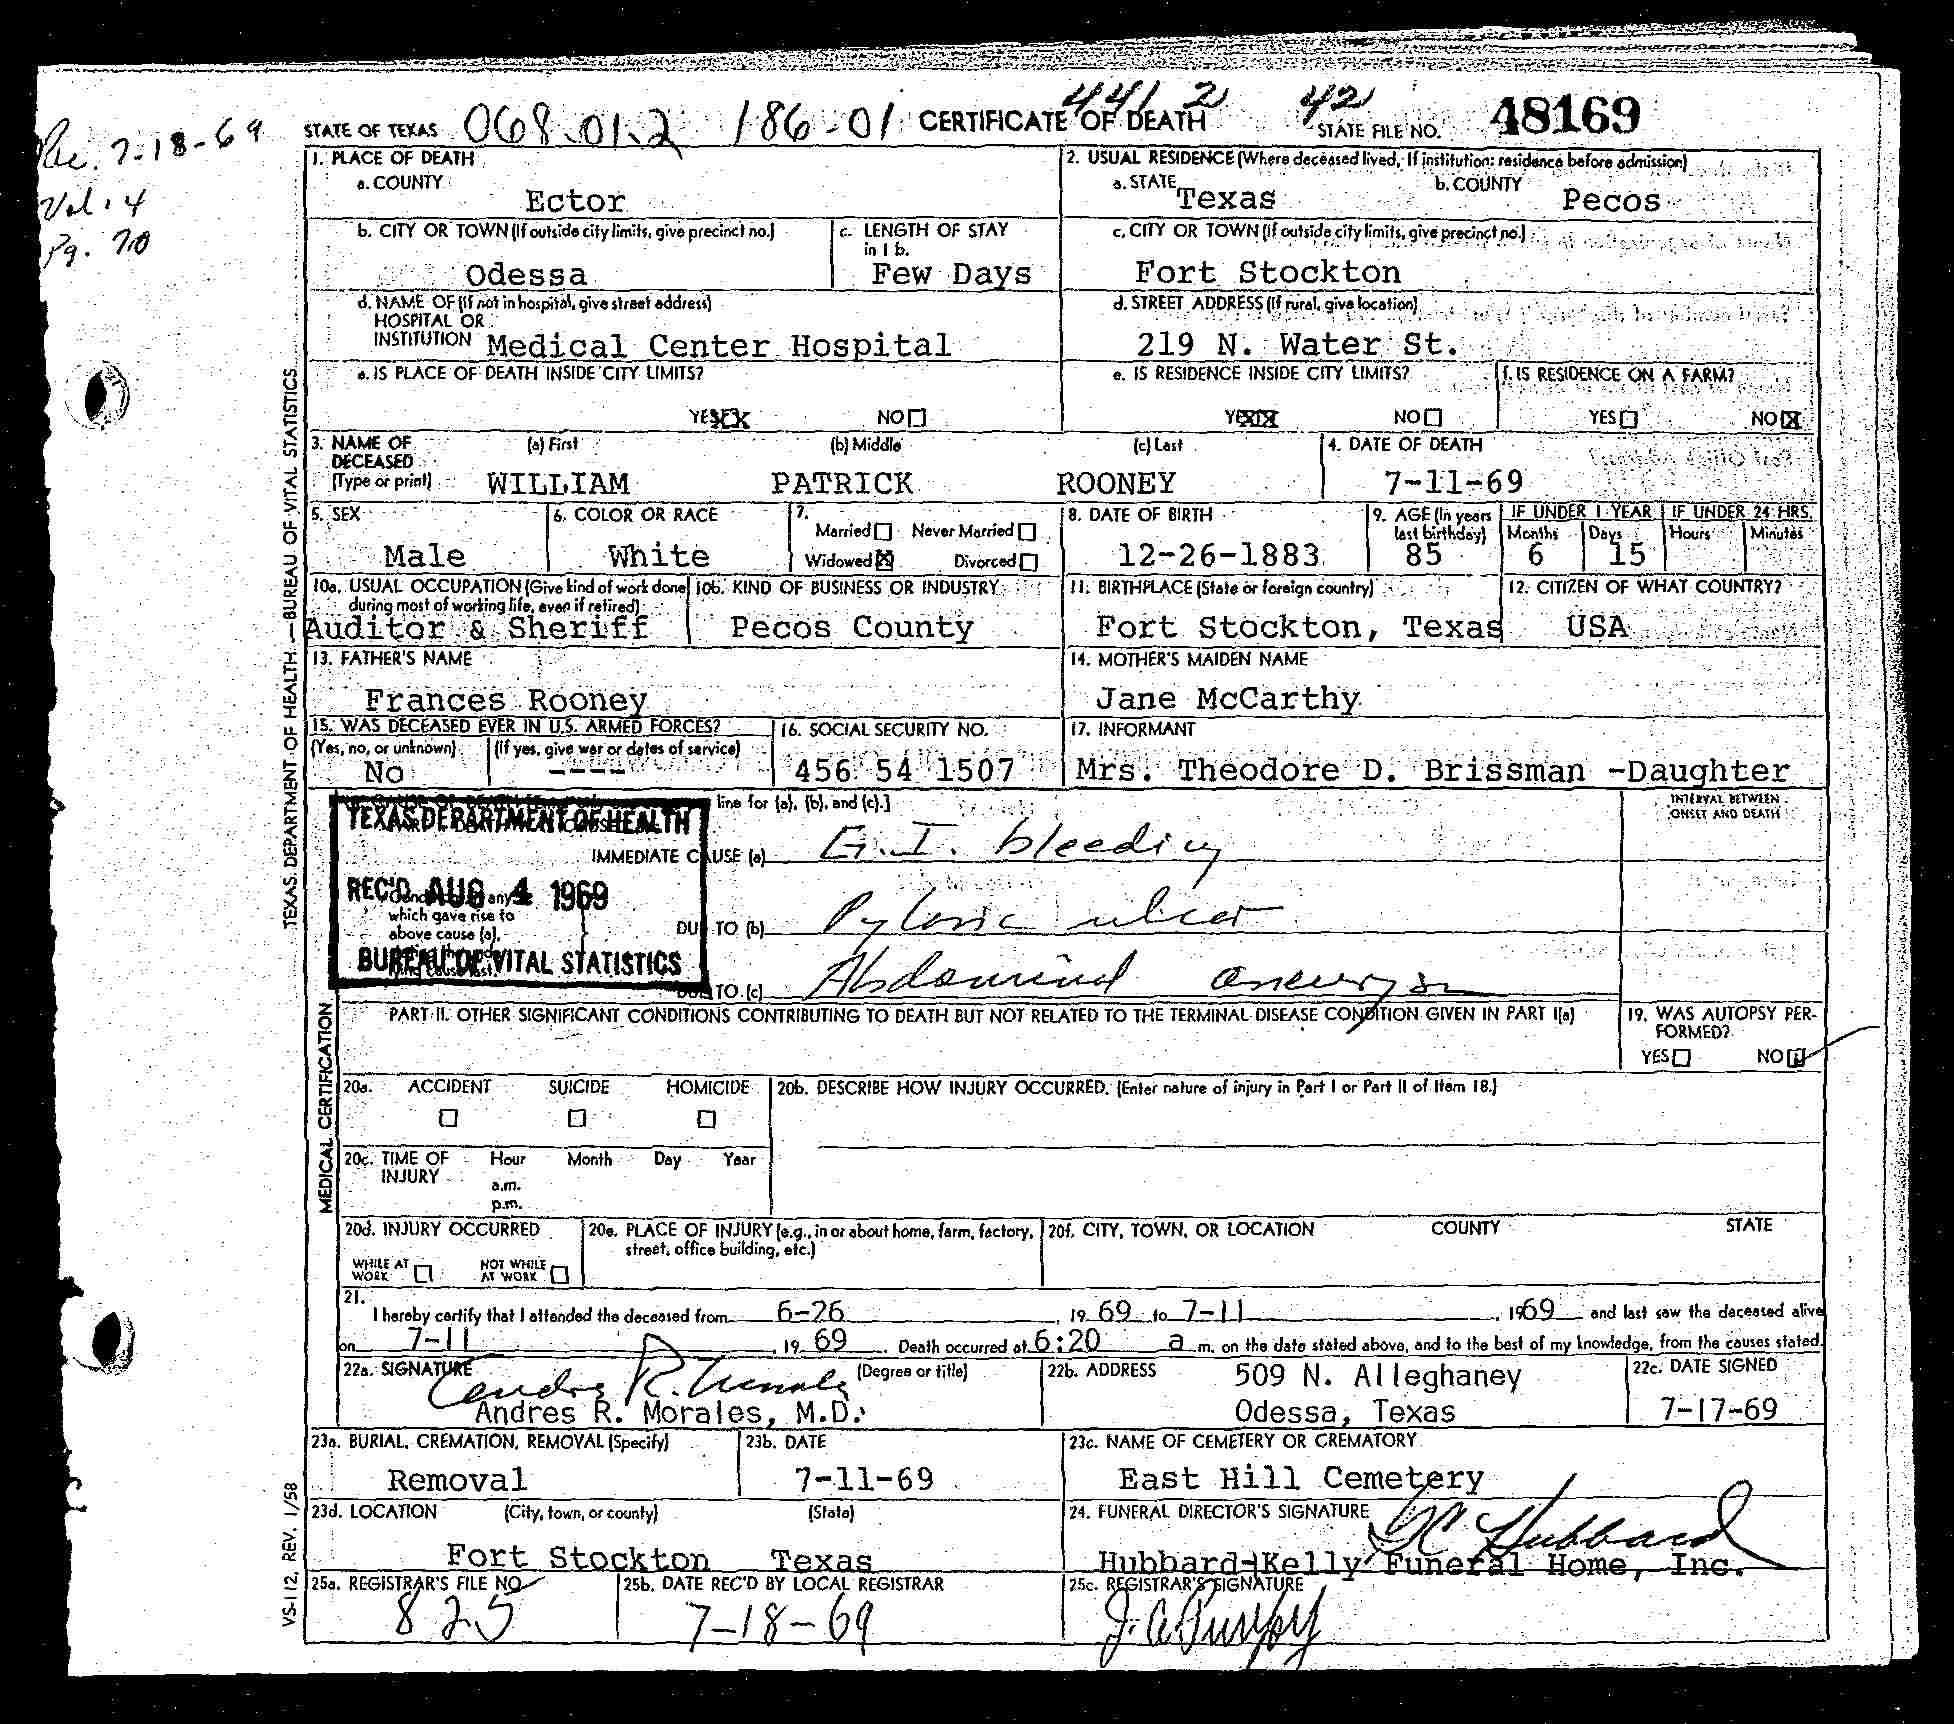 Rec. 7-18-69
Vol. 4
Pg. 70
STATE OF TEXAS 068-01-2 186-01 CERTIFICATE OF DEATH 441 2 42 STATE FILE NO. 48169
1. PLACE OF DEATH
a. COUNTY
Ector
2. USUAL RESIDENCE (Where deceased lived, If institution: residence before admission)
a. STATE Texas b. COUNTY Pecos
b. CITY OR TOWN (If outside city limits, give precinct no.)
Odessa
c. LENGTH OF STAY in 1 b.
Few Days
c. CITY OR TOWN (If outside city limits, give precinct no.)
Fort Stockton
d. NAME OF (If not in hospital, give street address)
HOSPITAL OR
INSTITUTION Medical Center Hospital
d. STREET ADDRESS (If rural, give location)
219 N. Water St.
e. IS PLACE OF DEATH INSIDE CITY LIMITS?
YES NO
e. IS RESIDENCE INSIDE CITY LIMITS?
YES NO
f. IS RESIDENCE ON A FARM?
YES NO X
3. NAME OF DECEASED (Type or print)
(a) First (b) Middle (c) Last
WILLIAM PATRICK ROONEY
4. DATE OF DEATH
7-11-69
5. SEX
Male
6. COLOR OR RACE
White
7.
Married Never Married
Widowed X Divorced
8. DATE OF BIRTH
12-26-1883
9. AGE (In years last birthday)
85
IF UNDER 1 YEAR
Months Days
6 15
IF UNDER 24 HRS.
Hours Minutes
10a. USUAL OCCUPATION (Give kind of work done during most of working life, even if retired)
Auditor & Sheriff
10b. KIND OF BUSINESS OR INDUSTRY
Pecos County
11. BIRTHPLACE (State or foreign country)
Fort Stockton, Texas
12. CITIZEN OF WHAT COUNTRY?
USA
13. FATHER'S NAME
Frances Rooney
14. MOTHER'S MAIDEN NAME
Jane McCarthy
15. WAS DECEASED EVER IN U.S. ARMED FORCES?
(Yes, no, or unknown) (If yes, give war or dates of service)
No ----
16. SOCIAL SECURITY NO.
456 54 1507
17. INFORMANT
Mrs. Theodore D. Brissman -Daughter
line for (a), (b), and (c).]
INTERVAL BETWEEN
ONSET AND DEATH
TEXAS DEPARTMENT OF HEALTH
REC'D AUG 4 1969
BUREAU OF VITAL STATISTICS
IMMEDIATE CAUSE (a) G.I. bleeding
which gave rise to
above cause (a),
DUE TO (b) Pyloric ulcer
DUE TO (c) Abdominal aneurysm
PART II. OTHER SIGNIFICANT CONDITIONS CONTRIBUTING TO DEATH BUT NOT RELATED TO THE TERMINAL DISEASE CONDITION GIVEN IN PART I(a)
19. WAS AUTOPSY PERFORMED?
YES NO
20a. ACCIDENT SUICIDE HOMICIDE
20b. DESCRIBE HOW INJURY OCCURRED. (Enter nature of injury in Part I or Part II of Item 18.)
20c. TIME OF INJURY
Hour Month Day Year
a.m.
p.m.
20d. INJURY OCCURRED
WHILE AT WORK NOT WHILE AT WORK
20e. PLACE OF INJURY (e.g., in or about home, farm, factory, street, office building, etc.)
20f. CITY, TOWN, OR LOCATION COUNTY STATE
21.
I hereby certify that I attended the deceased from 6-26, 19 69 to 7-11, 1969 and last saw the deceased alive
on 7-11, 19 69. Death occurred at 6:20 a m. on the date stated above, and to the best of my knowledge, from the causes stated.
22a. SIGNATURE (Degree or title)
Andres R. Morales
Andres R. Morales, M.D.
22b. ADDRESS
509 N. Alleghaney
Odessa, Texas
22c. DATE SIGNED
7-17-69
23a. BURIAL, CREMATION, REMOVAL (Specify)
Removal
23b. DATE
7-11-69
23c. NAME OF CEMETERY OR CREMATORY
East Hill Cemetery
23d. LOCATION (City, town, or county) (State)
Fort Stockton Texas
24. FUNERAL DIRECTOR'S SIGNATURE
Hubbard
Hubbard-Kelly Funeral Home, Inc.
25a. REGISTRAR'S FILE NO.
825
25b. DATE REC'D BY LOCAL REGISTRAR
7-18-69
25c. REGISTRAR'S SIGNATURE
TEXAS DEPARTMENT OF HEALTH — BUREAU OF VITAL STATISTICS
MEDICAL CERTIFICATION
VS-112, REV. 1/58